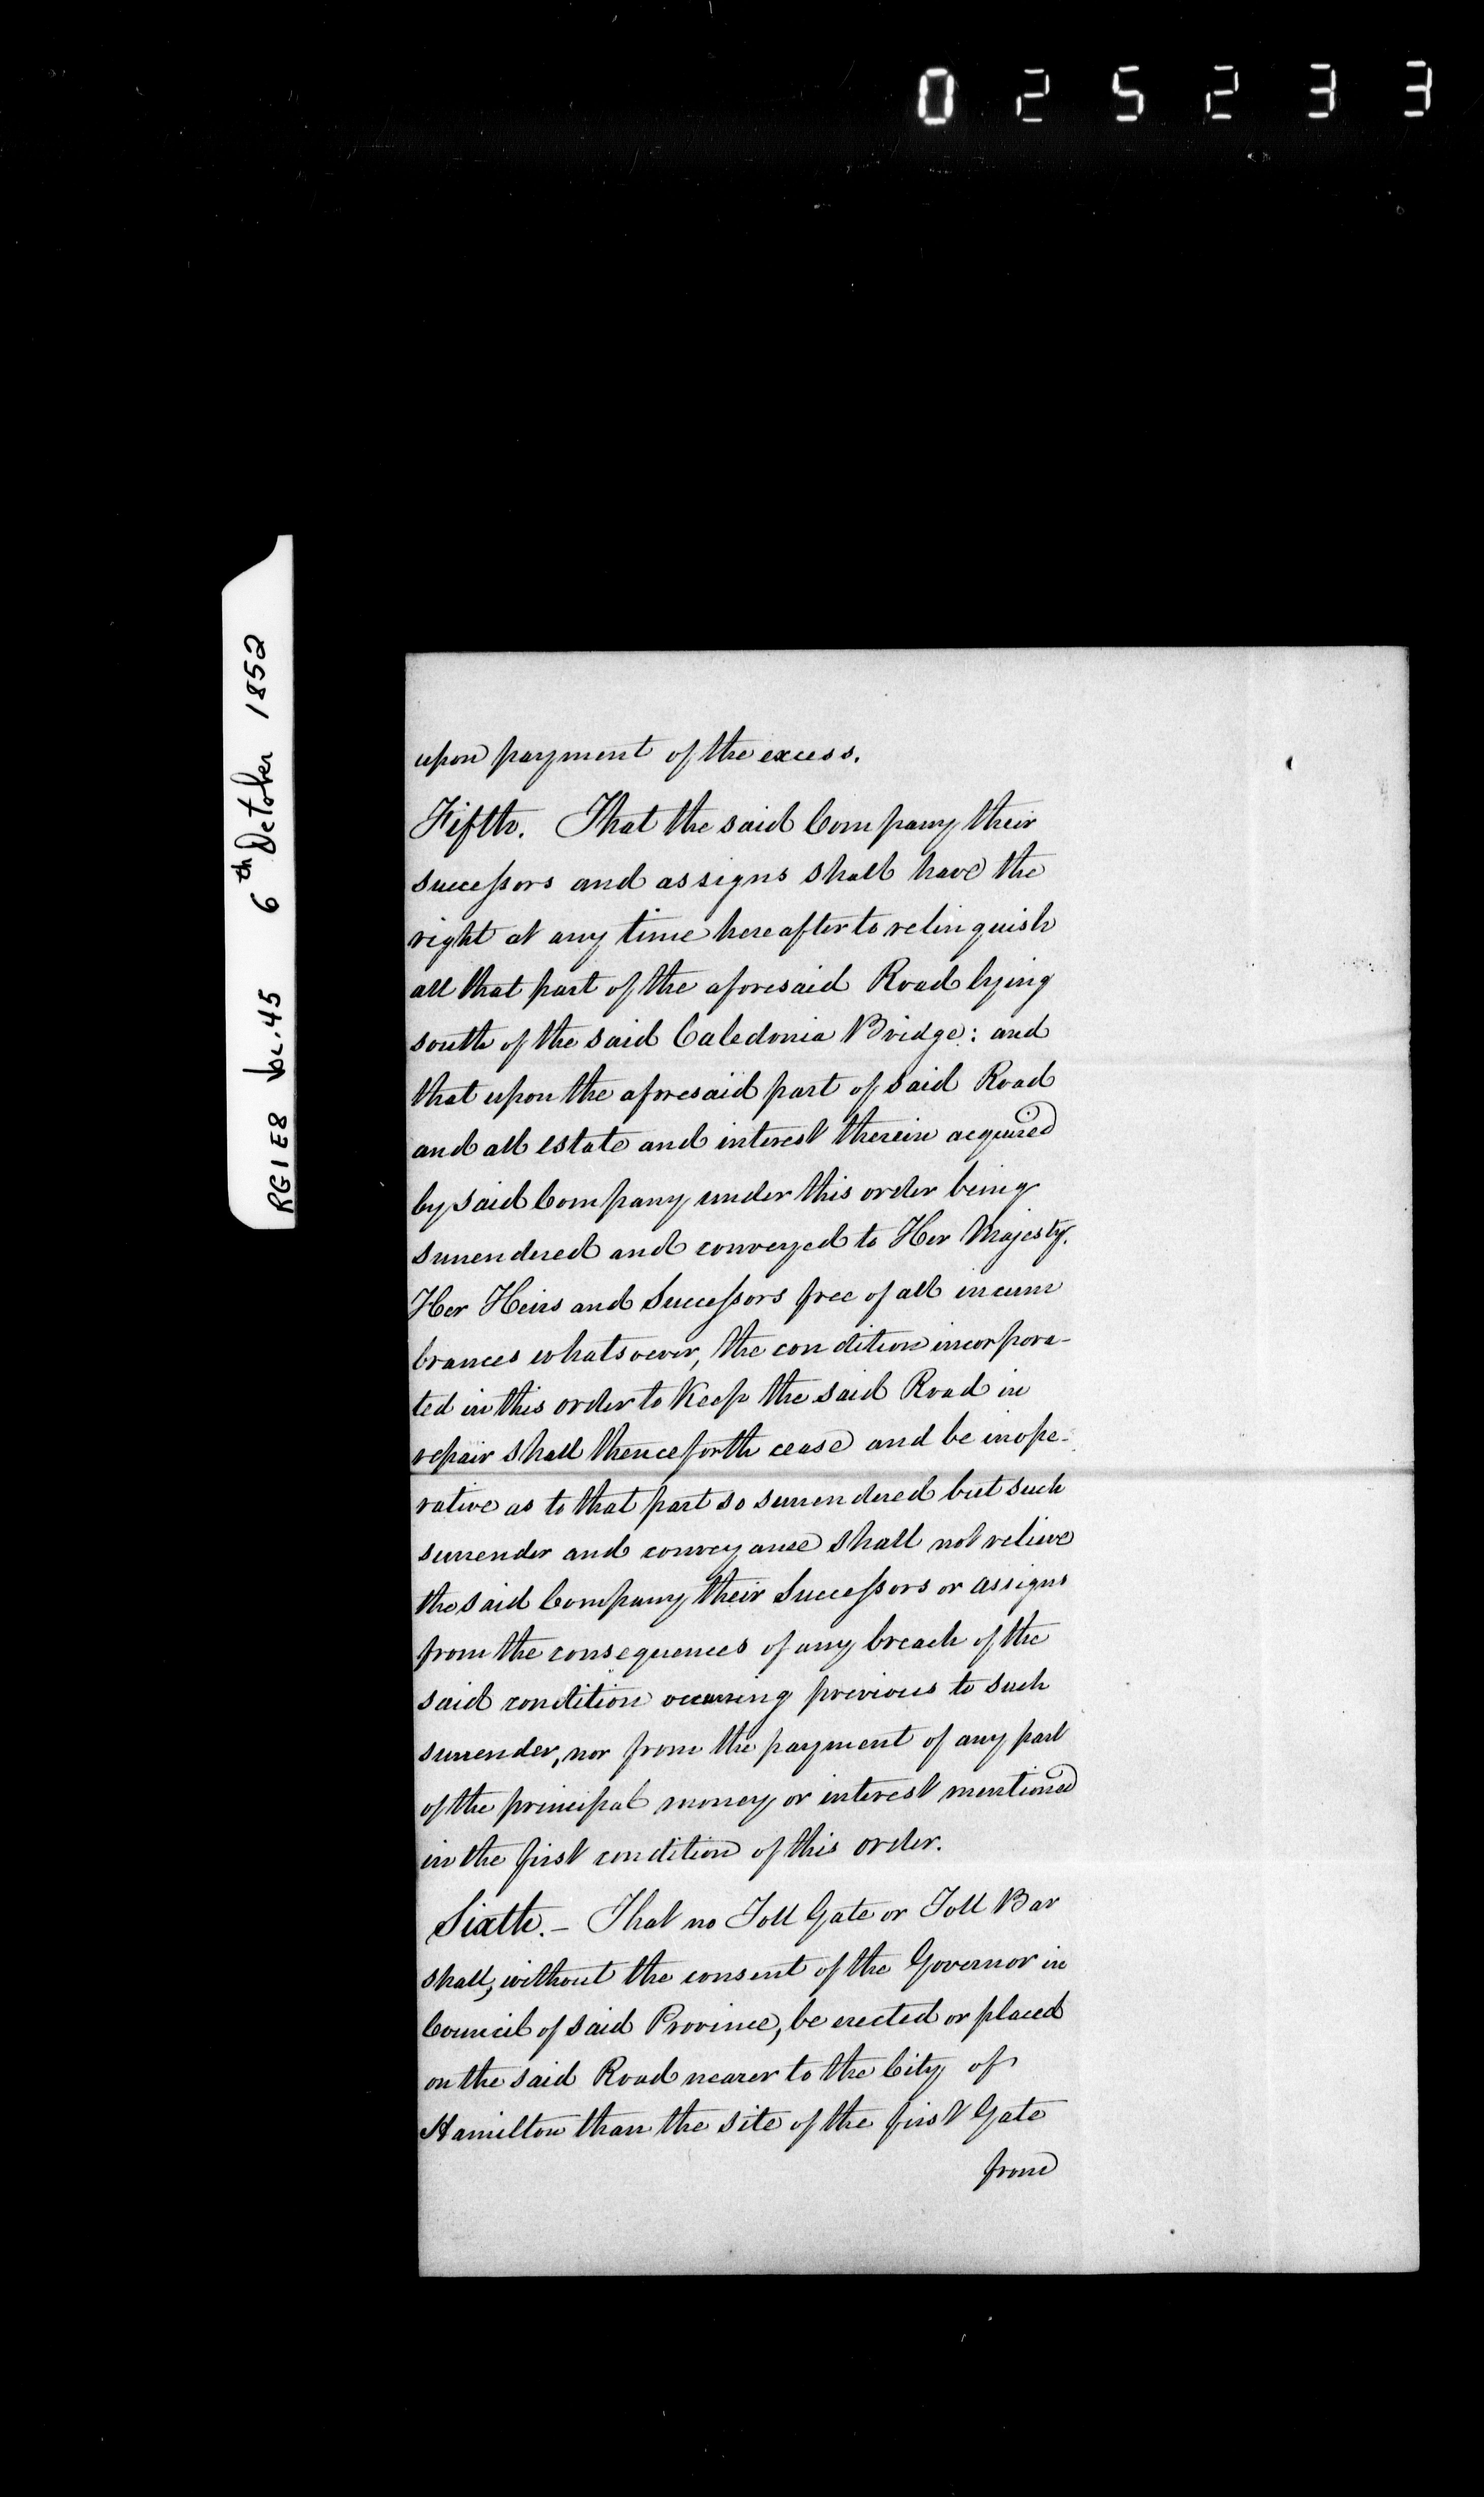 025233
RG1E8 Vol. 45 6th October 1852
upon payment of the excess.
Fifth. That the said Company their
successors and assigns shall have the
right at any time hereafter to relinquish
all that part of the aforesaid Road lying
south of the said Caledonia Bridge: and
that upon the aforesaid part of said Road
and all estate and interest therein acquired
by said Company under this order being
surrendered and conveyed to Her Majesty.
Her Heirs and Successors free of all incum
brances whatsoever, the condition incorpora-
ted in this order to keep the said Road in
repair shall thenceforth cease and be inope-
rative as to that part so surrendered but such
surrender and conveyance shall not relieve
the said Company their Successors or assigns
from the consequences of any breach of the
said condition occurring previous to such
surrender, nor from the payment of any part
of the principal money or interest mentioned
in the first condition of this order.
Sixth. - That no Toll Gate or Toll Bar
shall, without the consent of the Governor in
Council of said Province, be erected or placed
on the said Road nearer to the City of
Hamilton than the site of the first Gate
from